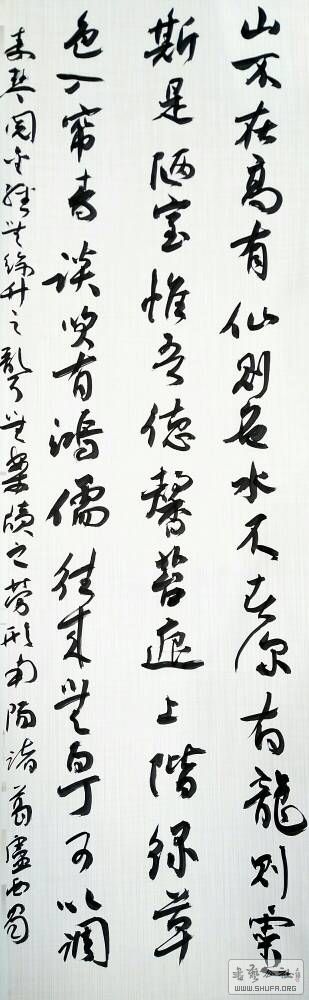 山不在高有仙则名水不在深有龍则灵
斯是陋室惟吾德馨苔痕上階绿草
色入帘青谈笑有鸿儒往来無白丁可以调
素琴阅金经無丝竹之乱耳無案牍之劳形南阳诸葛廬西蜀
WWW.SHUFA.ORG